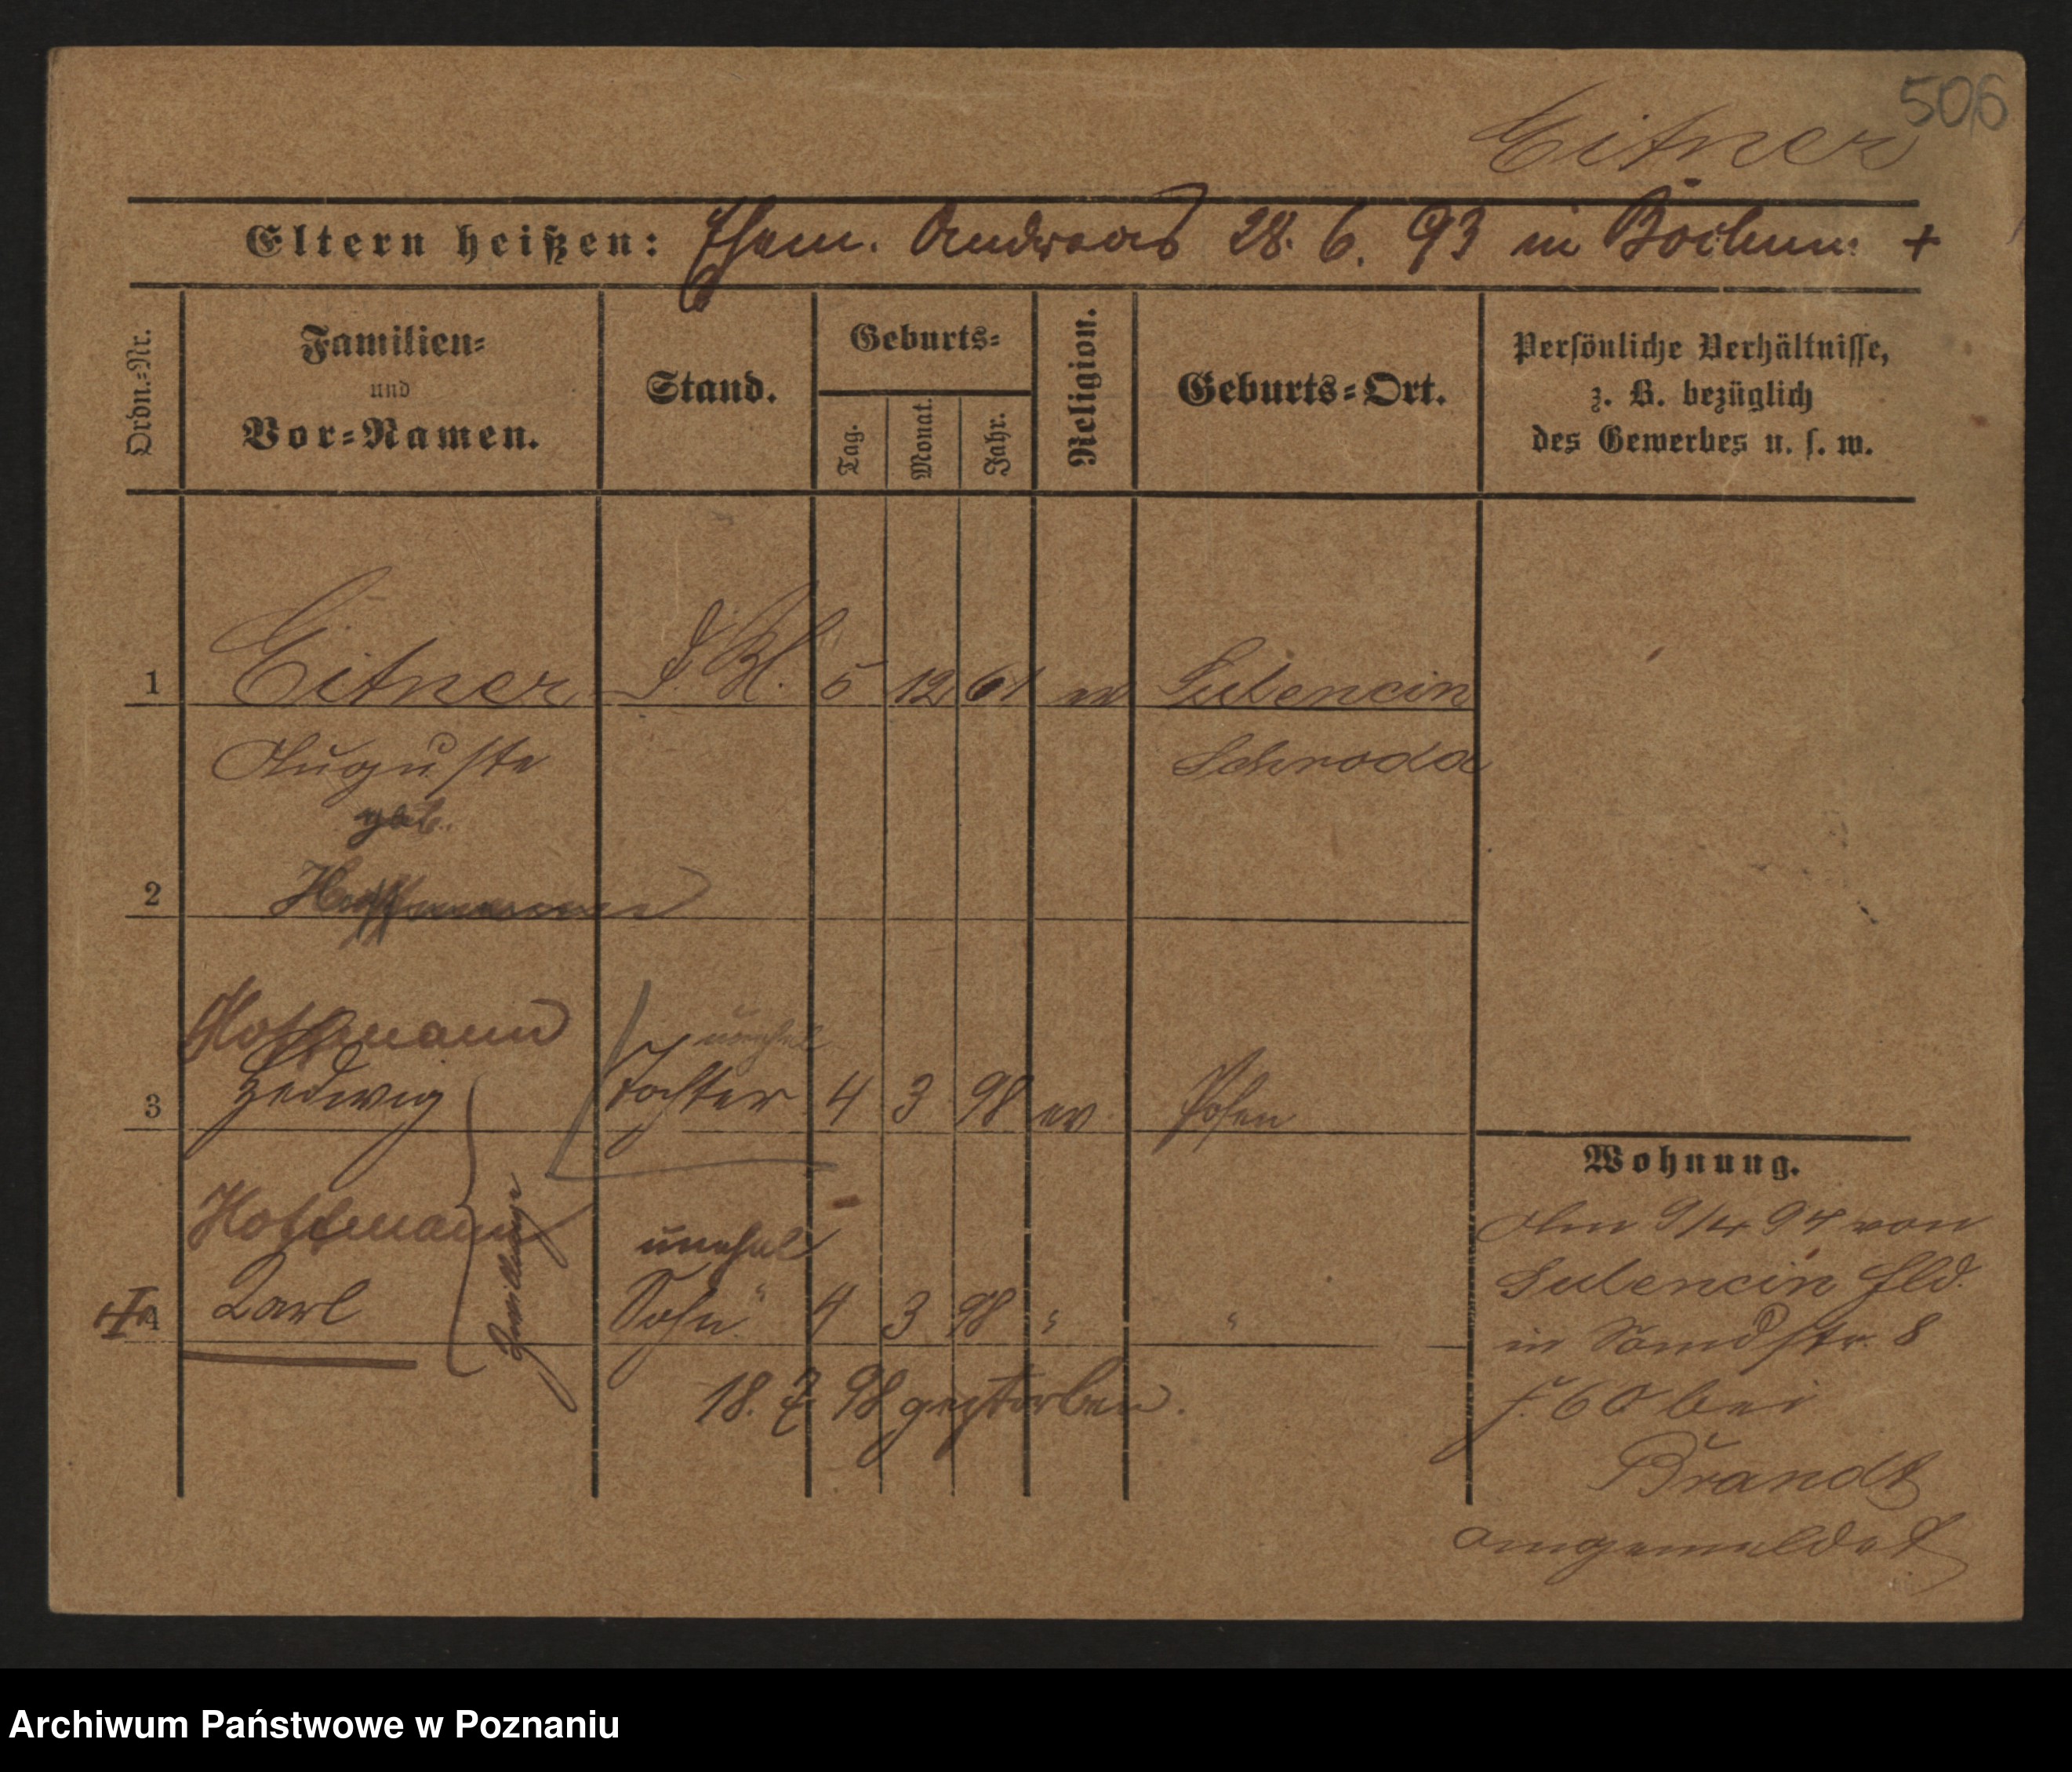 506
Eitner
Eltern heißen: Ehem. Andreas 28. 6. 93 in Bochum +
Ordn.=Nr.
Familien=
und
Vor=Namen.
Stand.
Geburts=
Tag.
Monat.
Jahr.
Religion.
Geburts=Ort.
Persönliche Verhältnisse,
z. B. bezüglich
des Gewerbes u. s. w.
1 Eitner 5 12 61 ev Sulencin
Auguste Schroda
geb.
2 Hoffmann
Hoffmann unehel
3 Hedwig Tochter 4 3 98 ev Posen
Hoffmann unehel
4 Karl Sohn 4 3 98 " "
Zwillinge
18. 7. 98 gestorben.
Wohnung.
Am 9/4 97 von
Sulencin
in Sandstr. 8
bei
Brandt
angemeldet
Archiwum Państwowe w Poznaniu